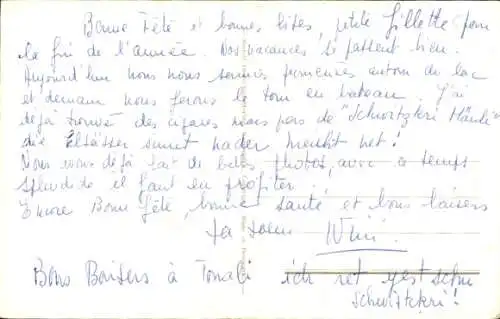 Bonne Fête et bonnes bises, petite Gillette pour
la fin de l'année. Nos vacances se passent bien.
Aujourd'hui nous nous sommes promenées autour du lac
et demain nous ferons le tour en bateau. J'ai
déjà trouvé des cigares mais pas de "Schwitzkri
die Elsässer
Nous avons déjà fait de belles photos, avec ce temps
splendide il faut en profiter.
Encore Bonne Fête, bonne santé et bons baisers
ta soeur
Bons Baisers à Tonali ich
Schwitzkri!